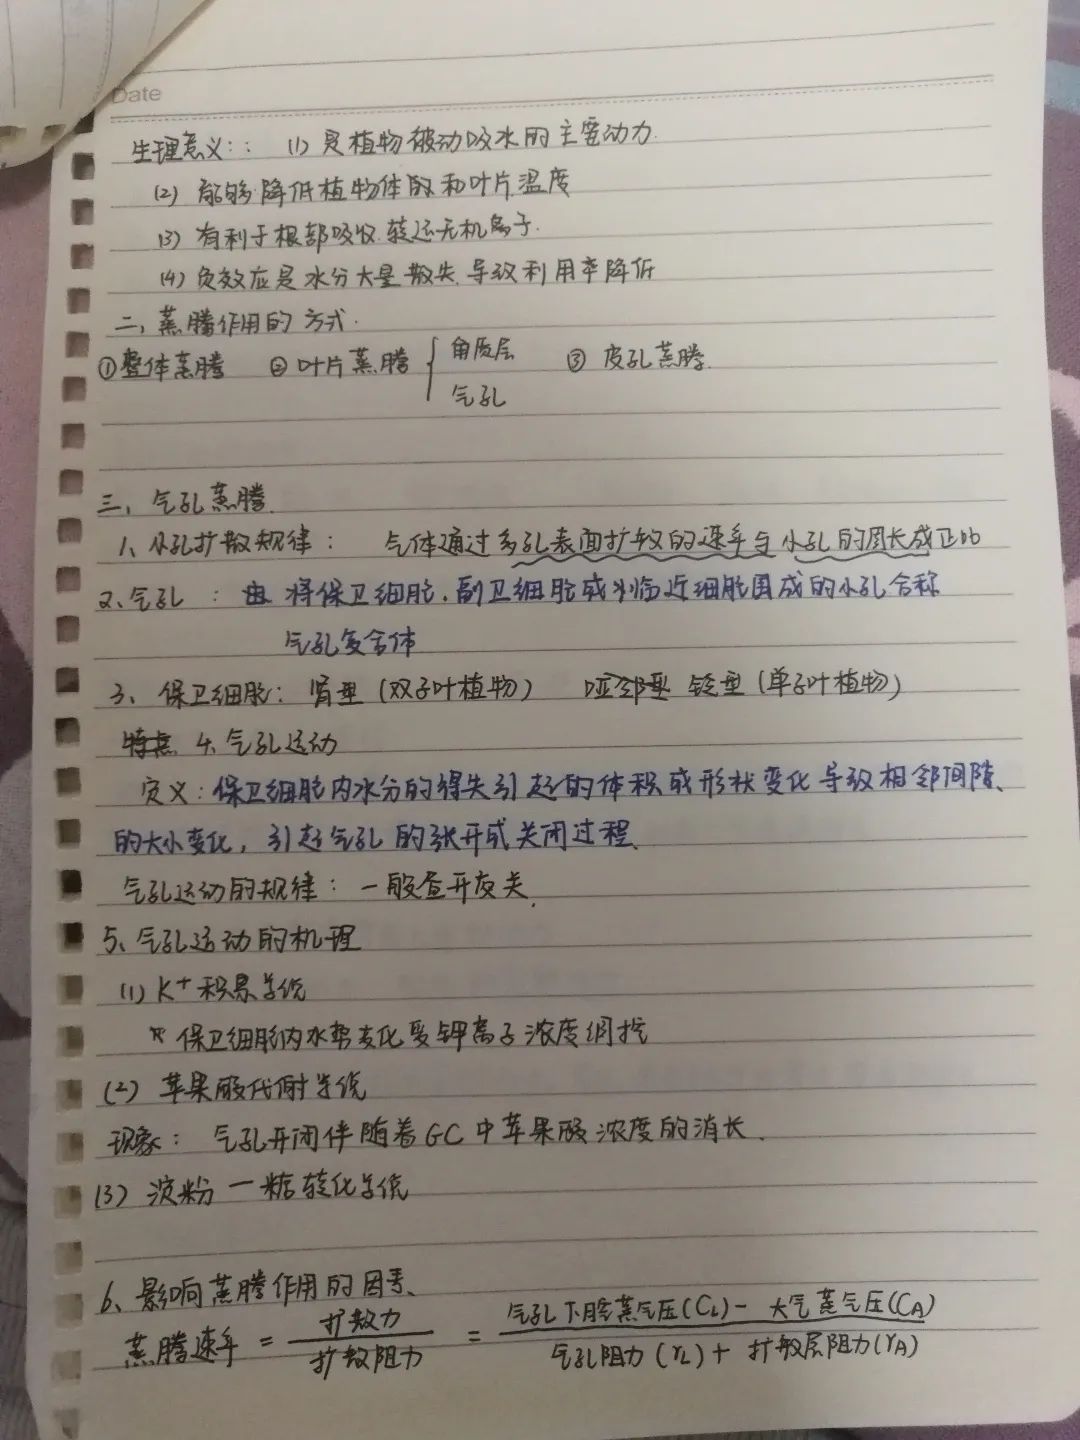 Date
生理意义：： (1) 是植物被动吸水的主要动力
(2) 能够降低植物体的和叶片温度
(3) 有利于根部吸收.转运无机离子.
(4) 负效应是水分大量散失.导致利用率降低
二、蒸腾作用的方式.
①整体蒸腾 ②叶片蒸腾 { 角质层 ③ 皮孔蒸腾.
气孔
三、气孔蒸腾.
1、小孔扩散规律： 气体通过多孔表面扩散的速率与小孔的周长成正比
2、气孔 ： 由 将保卫细胞、副卫细胞或 临近细胞围成的小孔合称
气孔复合体
3、保卫细胞：肾型（双子叶植物） 哑邻型 铃型（单子叶植物）
特点 4.气孔运动
定义：保卫细胞内水分的得失引起的体积或形状变化导致相邻间隙、
的大小变化，引起气孔的张开或关闭过程.
气孔运动的规律：一般昼开夜关.
5、气孔运动的机理
(1) K⁺积累学说
保卫细胞内水势变化受钾离子浓度调控
(2) 苹果酸代谢学说
现象： 气孔开闭伴随着GC中苹果酸浓度的消长.
(3) 淀粉一糖转化学说
6、影响蒸腾作用的因素、
蒸腾速率 = 扩散力 / 扩散阻力 = 气孔下腔蒸气压(CL) - 大气蒸气压(CA) / 气孔阻力(rL) + 扩散层阻力(rA)